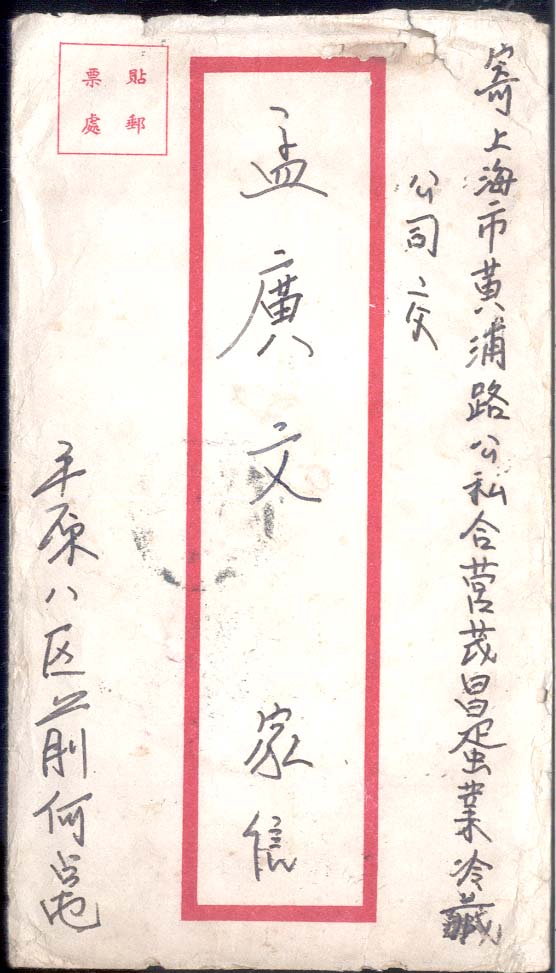 寄上海市黃浦路公私合营茂昌蛋業冷藏
公司交
孟廣文 家信
貼郵
票處
平原八区前何